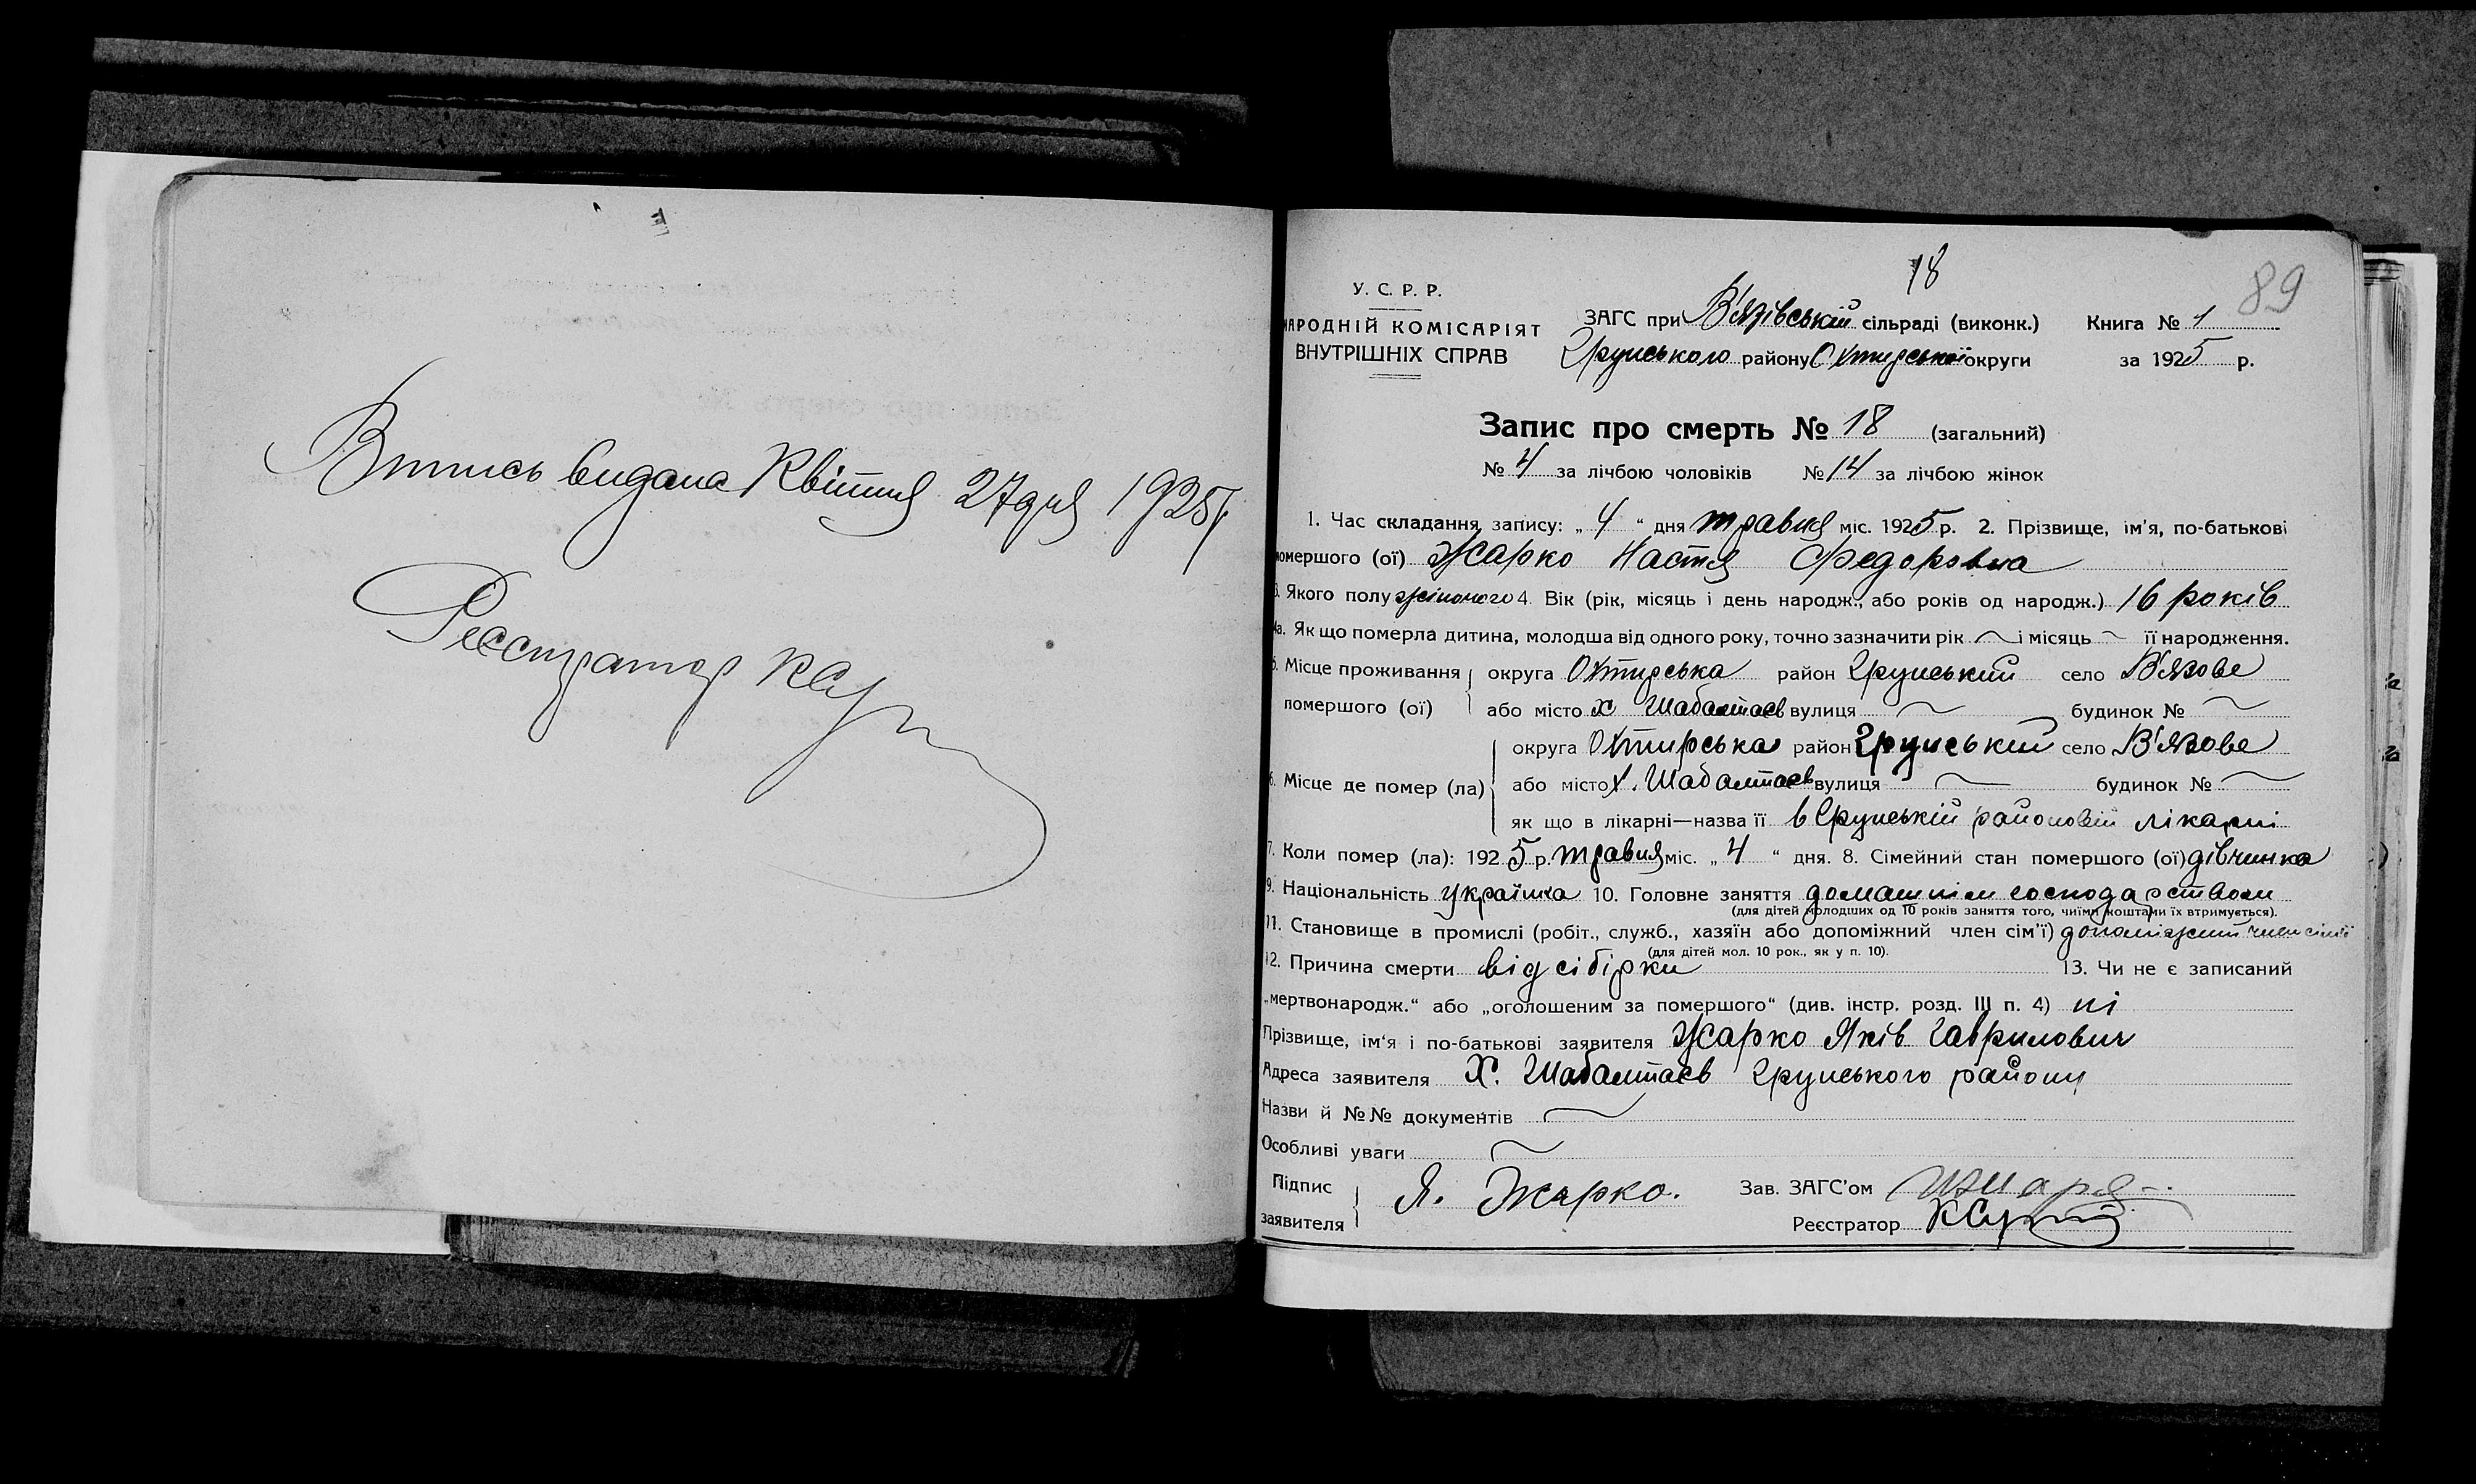 Випись видана Квітня 27 дня 1925 р
Реєстратор
18
89
У. С. Р. Р.
НАРОДНІЙ КОМІСАРІЯТ
ВНУТРІШНІХ СПРАВ
ЗАГС при В'язівській сільраді (виконк.)
Грунського району Охтирської округи
Книга № 1
за 1925 р.
Запис про смерть № 18 (загальний)
№ 4 за лічбою чоловіків № 14 за лічбою жінок
1. Час складання запису: „ 4 “ дня травня міс. 1925 р. 2. Прізвище, ім'я, по-батькові
помершого (ої) Жарко Настя Федоровна
3. Якого полу жіночого 4. Вік (рік, місяць і день народж., або років од народж.) 16 років
4а. Як що померла дитина, молодша від одного року, точно зазначити рік і місяць її народження.
5. Місце проживання округа Охтирська район Грунський село В'язове
помершого (ої) або місто х Шабалтаєв вулиця будинок №
округа Охтирська район Грунський село В'язове
6. Місце де помер (ла) або місто х. Шабалтаєв вулиця будинок №
як що в лікарні—назва її в Грунській районовій лікарні
7. Коли помер (ла): 1925 р. травня міс. „ 4 “ дня. 8. Сімейний стан помершого (ої) дівчинка
9. Національність українка 10. Головне заняття домашнім господарством
(для дітей молодших од 10 років заняття того, чиїми коштами їх втримується).
11. Становище в промислі (робіт., служб., хазяїн або допоміжний член сім'ї) допоміжний член сім'ї
(для дітей мол. 10 рок., як у п. 10).
12. Причина смерти від сібірки 13. Чи не є записаний
„мертвонародж.“ або „оголошеним за помершого“ (див. інстр. розд. III п. 4) ні
Прізвище, ім'я і по-батькові заявителя Жарко Яків Гаврилович
Адреса заявителя Х. Шабалтаєв Грунського району
Назви й №№ документів
Особливі уваги
Підпис
заявителя
Я. Жарко.
Зав. ЗАГС'ом
Реєстратор